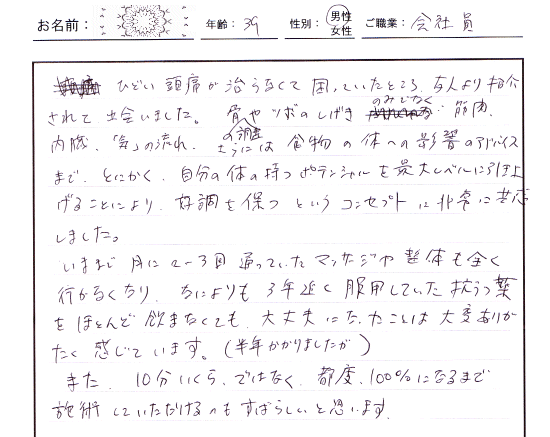 お名前： 年齢：39 性別：男性 女性 ご職業：会社員
ひどい頭痛が治らなくて困っていたところ、友人より紹介
されて出会いました。骨やツボのしげきのみでなく、筋肉、
内臓、「気」の流れ、の調整 さらには食物の体への影響のアドバイス
まで、とにかく、自分の体の持つポテンシャルを最大レベルに引き上
げることにより、好調を保つというコンセプトに非常に共感
しました。
いままで月に2〜3回通っていたマッサージや整体も全く
行かなくなり、なによりも3年近く服用していた抗うつ薬
をほとんど飲まなくても、大丈夫になったことは大変ありが
たく感じています。（半年かかりましたが）
また、10分いくら、ではなく、都度、100%になるまで
施術していただけるのもすばらしいと思います。